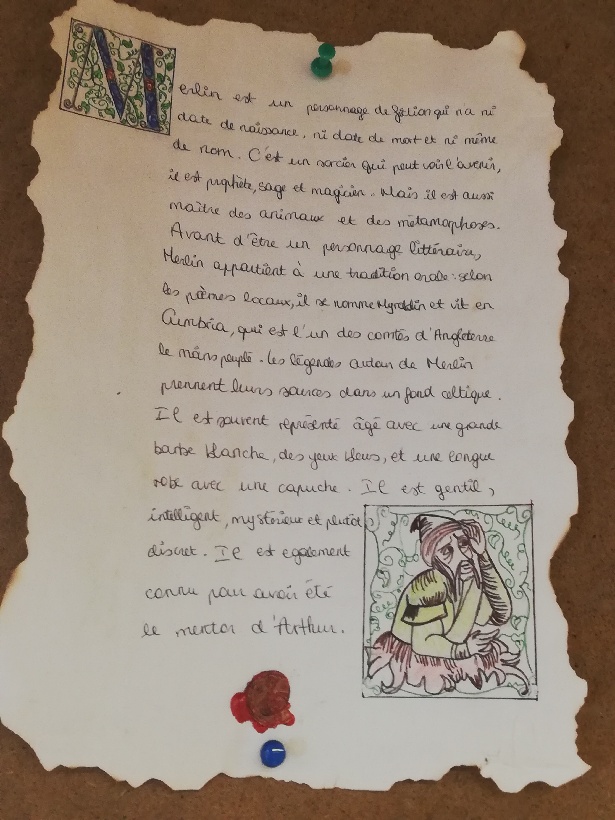 Merlin est un personnage de fiction qui n'a ni
date de naissance, ni date de mort et ni même
de nom. C'est un sorcier qui peut voir l'avenir,
il est prophète, sage et magicien. Mais il est aussi
maître des animaux et des métamorphoses.
Avant d'être un personnage littéraire,
Merlin appartient à une tradition orale : selon
les poèmes locaux, il se nomme Myrddin et vit en
Cumbria, qui est l'un des comtés d'Angleterre
le moins peuplé. Les légendes autour de Merlin
prennent leurs sources dans un fond celtique.
Il est souvent représenté âgé avec une grande
barbe blanche, des yeux bleus, et une longue
robe avec une capuche. Il est gentil,
intelligent, mystérieux et plutôt
discret. Il est egalement
connu pour avoir été
le mentor d'Arthur.